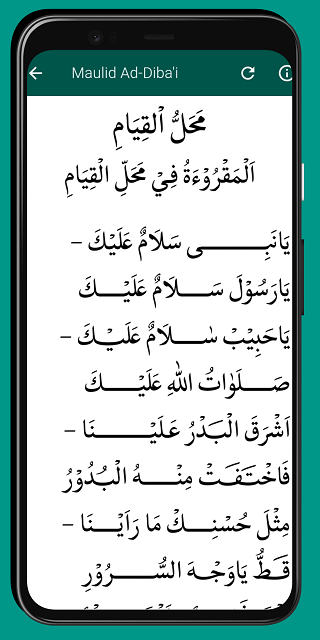 Maulid Ad-Diba'i
مَحَلُّ الْقِيَامِ
اَلْمَقْرُوْءَةُ فِيْ مَحَلِّ الْقِيَامِ
يَانَبِـــى سَلَامٌ عَلَيْكَ –
يَارَسُوْلَ ســـلَامٌ عَلَيْـــكَ
يَاحَبِيْبْ سٰـــلَامٌ عَلَيْـكَ –
صَـــلَوٰاتُ اللهِ عَلَيْـــكَ
اَشْرَقَ الْبَـدْرُ عَلَيْـــنَا –
فَاخْتَـفَـتْ مِنْـــهُ الْبُـدُوْرُ
مِثْلَ حُسْنِـــكْ مَا رَاَيْـــنَا –
قَـطُّ يَاوَجْـهَ السُّـــرُوْرِ